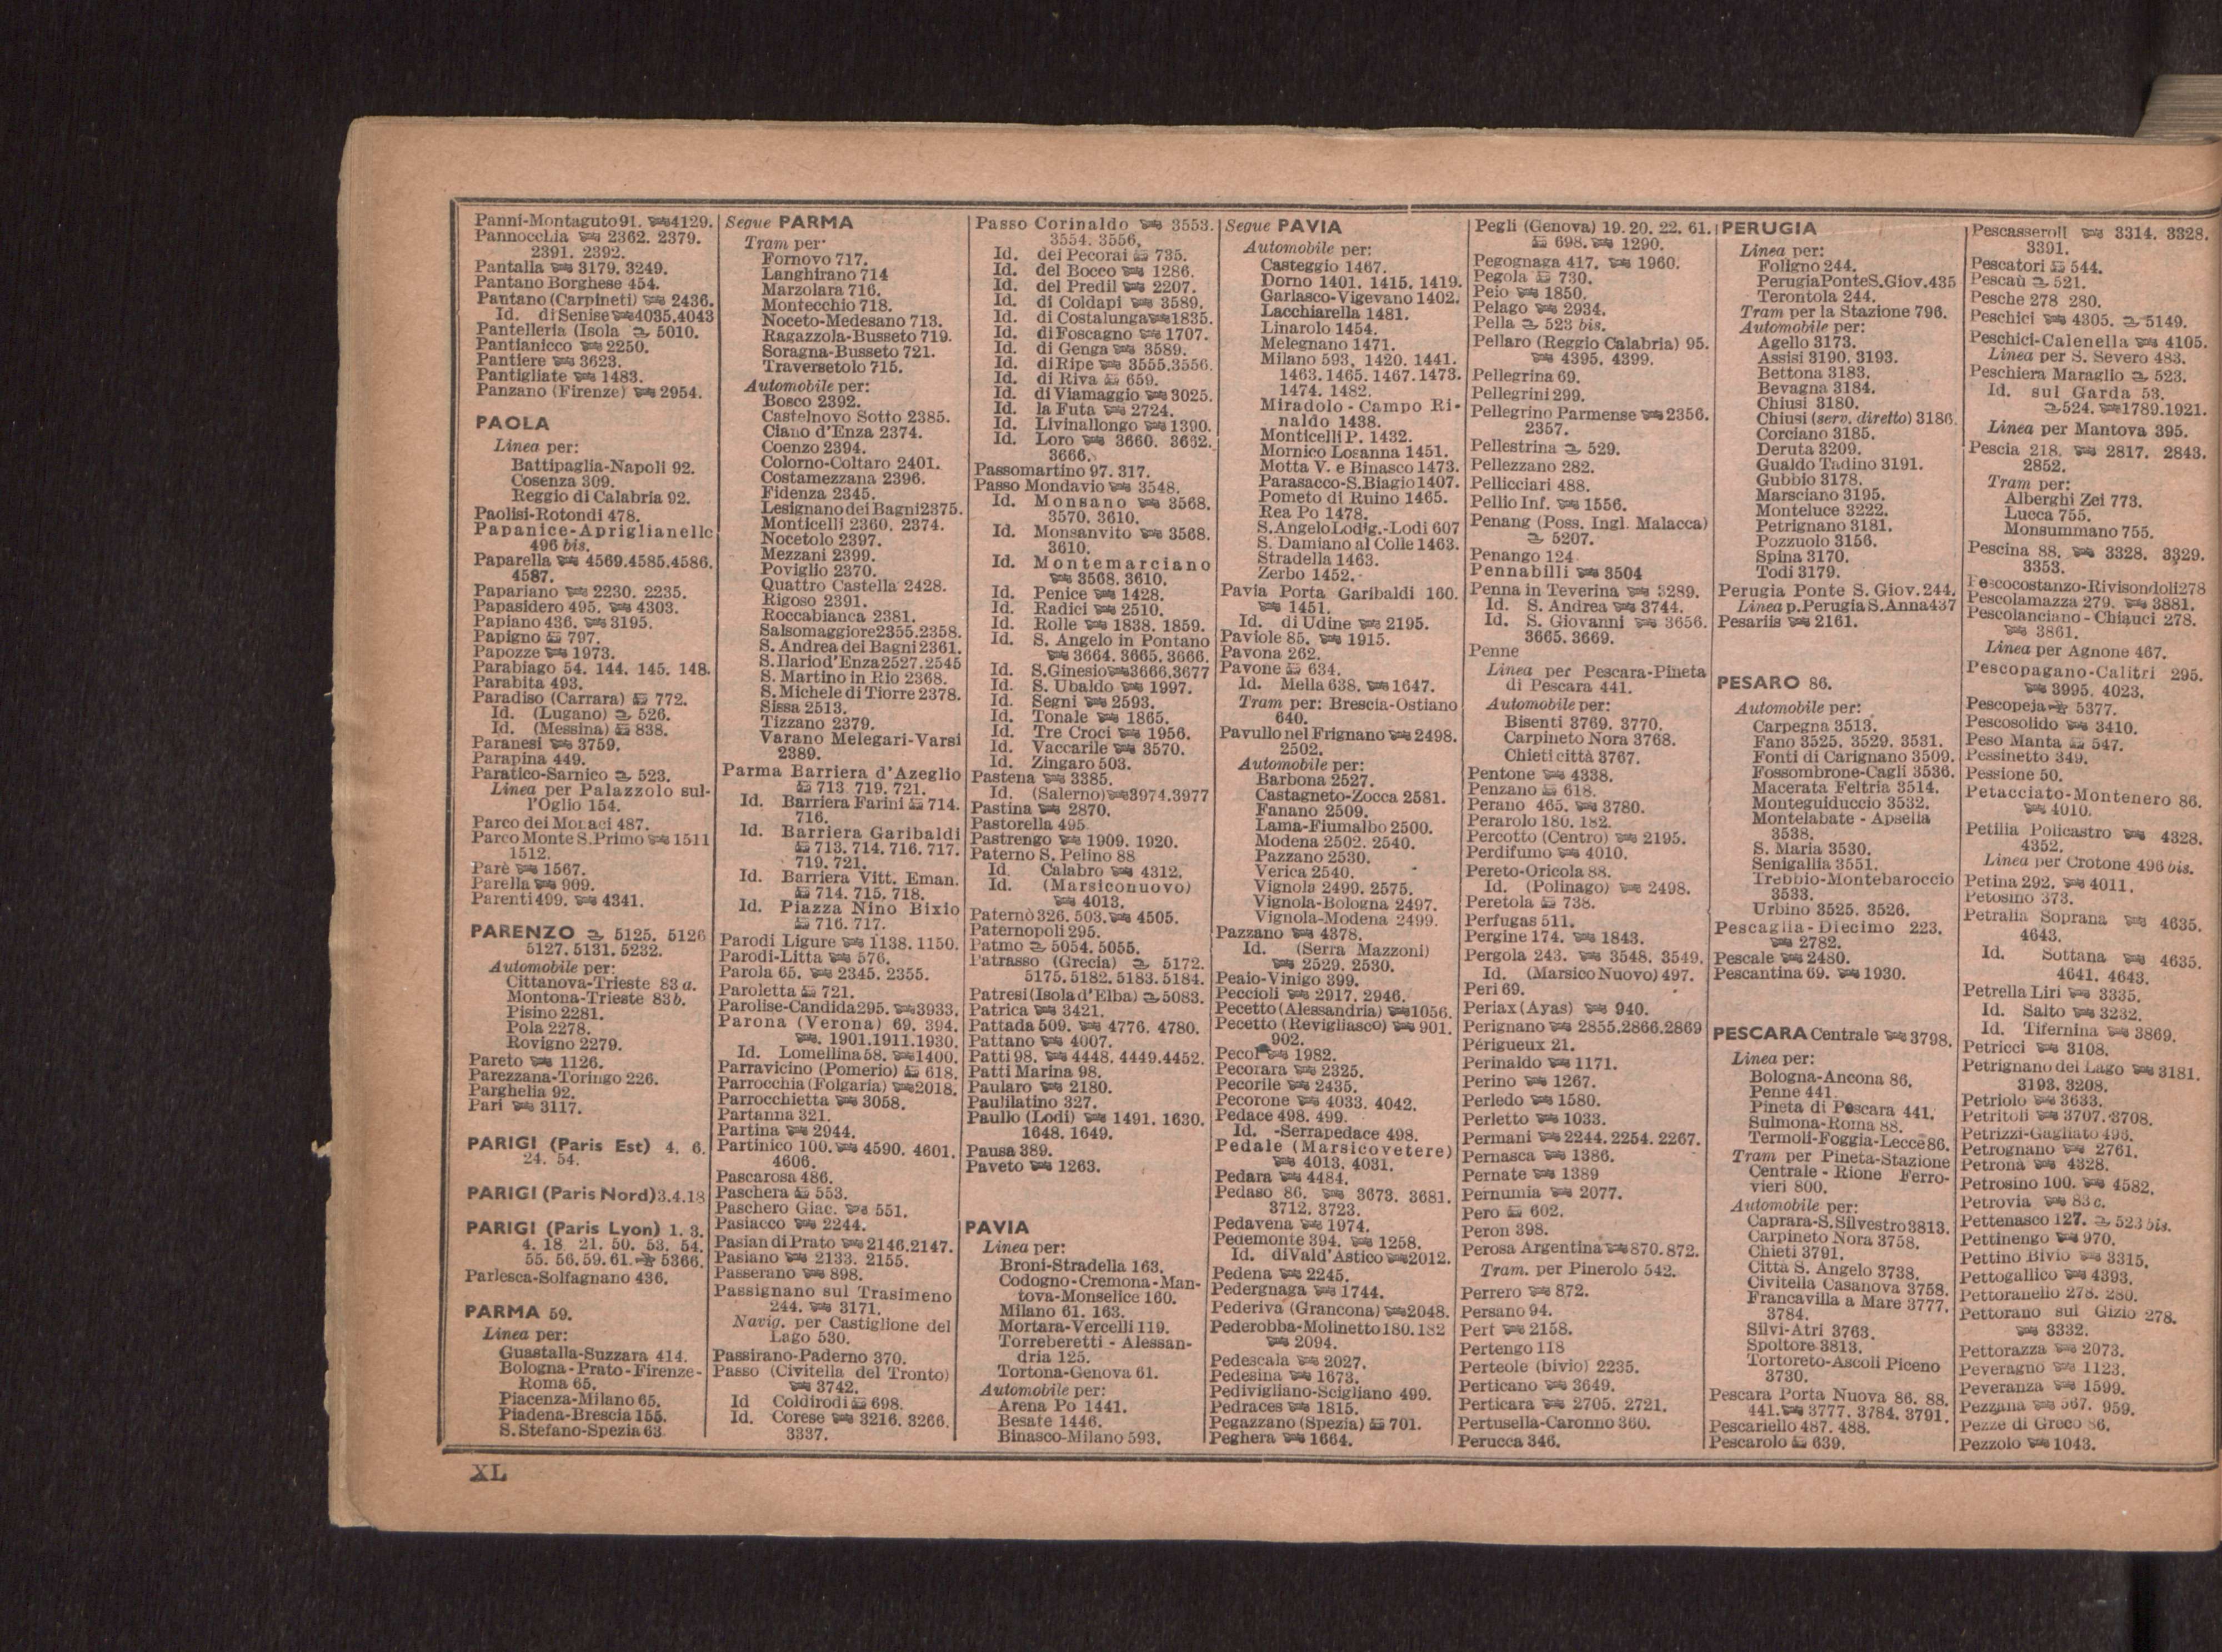 Panni-Montaguto 91. 4129.
Pannocchia 2362. 2379.
2391. 2392.
Pantalla 3179. 3249.
Pantano Borghese 454.
Pantano (Carpineti) 2436.
Id. di Senise 4035.4043
Pantelleria (Isola 5010.
Pantianicco 2250.
Pantiere 3623.
Pantigliate 1483.
Panzano (Firenze) 2954.
PAOLA
Linea per:
Battipaglia-Napoli 92.
Cosenza 309.
Reggio di Calabria 92.
Paolisi-Rotondi 478.
Papanice-Apriglianello
496 bis.
Paparella 4569.4585.4586.
4587.
Papariano 2230. 2235.
Papasidero 495. 4303.
Papiano 436. 3195.
Papigno 797.
Papozze 1973.
Parabiago 54. 144. 145. 148.
Parabita 493.
Paradiso (Carrara) 772.
Id. (Lugano) 526.
Id. (Messina) 838.
Paranesi 3759.
Parapina 449.
Paratico-Sarnico 523.
Linea per Palazzolo sul-
l'Oglio 154.
Parco dei Monaci 487.
Parco Monte S. Primo 1511
1512.
Parè 1567.
Parella 909.
Parenti 499. 4341.
PARENZO 5125. 5126
5127. 5131. 5232.
Automobile per:
Cittanova-Trieste 83 a.
Montona-Trieste 83 b.
Pisino 2281.
Pola 2278.
Rovigno 2279.
Pareto 1126.
Parezzana-Toringo 226.
Parghelia 92.
Pari 3117.
PARIGI (Paris Est) 4. 6.
24. 54.
PARIGI (Paris Nord) 3.4.18
PARIGI (Paris Lyon) 1. 3.
4. 18 21. 50. 53. 54.
55. 56. 59. 61. 5366.
Parlesca-Solfagnano 436.
PARMA 59.
Linea per:
Guastalla-Suzzara 414.
Bologna-Prato-Firenze-
Roma 65.
Piacenza-Milano 65.
Piadena-Brescia 155.
S. Stefano-Spezia 63
Segue PARMA
Tram per:
Fornovo 717.
Langhirano 714
Marzolara 716.
Montecchio 718.
Noceto-Medesano 713.
Ragazzola-Busseto 719.
Soragna-Busseto 721.
Traversetolo 715.
Automobile per:
Bosco 2392.
Castelnovo Sotto 2385.
Ciano d'Enza 2374.
Coenzo 2394.
Colorno-Coltaro 2401.
Costamezzana 2396.
Fidenza 2345.
Lesignano dei Bagni 2375.
Monticelli 2360. 2374.
Nocetolo 2397.
Mezzani 2399.
Poviglio 2370.
Quattro Castella 2428.
Rigoso 2391.
Roccabianca 2381.
Salsomaggiore 2355.2358.
S. Andrea dei Bagni 2361.
S. Ilario d'Enza 2527.2545
S. Martino in Rio 2368.
S. Michele di Tiorre 2378.
Sissa 2513.
Tizzano 2379.
Varano Melegari-Varsi
2389.
Parma Barriera d'Azeglio
713 719. 721.
Id. Barriera Farini 714.
716.
Id. Barriera Garibaldi
713. 714. 716. 717.
719. 721.
Id. Barriera Vitt. Eman.
714. 715. 718.
Id. Piazza Nino Bixio
716. 717.
Parodi Ligure 1138. 1150.
Parodi-Litta 576.
Parola 65. 2345. 2355.
Paroletta 721.
Parolise-Candida 295. 3933.
Parona (Verona) 69. 394.
1901.1911.1930.
Id. Lomellina 58. 1400.
Parravicino (Pomerio) 618.
Parrocchia (Folgaria) 2018.
Parrocchietta 3058.
Partanna 321.
Partina 2944.
Partinico 100. 4590. 4601.
4606.
Pascarosa 486.
Paschera 553.
Paschero Giac. 551.
Pasiacco 2244.
Pasian di Prato 2146.2147.
Pasiano 2133. 2155.
Passerano 898.
Passignano sul Trasimeno
244. 3171.
Navig. per Castiglione del
Lago 530.
Passirano-Paderno 370.
Passo (Civitella del Tronto)
3742.
Id Coldirodi 698.
Id. Corese 3216. 3266.
3337.
Passo Corinaldo 3553.
3554. 3556.
Id. dei Pecorai 735.
Id. del Bocco 1286.
Id. del Predil 2207.
Id. di Coldapi 3589.
Id. di Costalunga 1835.
Id. di Foscagno 1707.
Id. di Genga 3589.
Id. di Ripe 3555.3556.
Id. di Riva 659.
Id. di Viamaggio 3025.
Id. la Futa 2724.
Id. Livinallongo 1390.
Id. Loro 3660. 3662.
3666.
Passomartino 97. 317.
Passo Mondavio 3548.
Id. Monsano 3568.
3570. 3610.
Id. Monsanvito 3568.
3610.
Id. Montemarciano
3568. 3610.
Id. Penice 1428.
Id. Radici 2510.
Id. Rolle 1838. 1859.
Id. S. Angelo in Pontano
3664. 3665. 3666.
Id. S. Ginesio 3666.3677
Id. S. Ubaldo 1997.
Id. Segni 2593.
Id. Tonale 1865.
Id. Tre Croci 1956.
Id. Vaccarile 3570.
Id. Zingaro 503.
Pastena 3385.
Id. (Salerno) 3974.3977
Pastina 2870.
Pastorella 495
Pastrengo 1909. 1920.
Paterno S. Pelino 88
Id. Calabro 4312.
Id. (Marsiconuovo)
4013.
Paternò 326. 503. 4505.
Paternopoli 295.
Patmo 5054. 5055.
Patrasso (Grecia) 5172.
5175. 5182. 5183. 5184.
Patresi (Isola d'Elba) 5083.
Patrica 3421.
Pattada 509. 4776. 4780.
Pattano 4007.
Patti 98. 4448. 4449.4452.
Patti Marina 98.
Paularo 2180.
Paulilatino 327.
Paullo (Lodi) 1491. 1630.
1648. 1649.
Pausa 389.
Paveto 1263.
PAVIA
Linea per:
Broni-Stradella 163.
Codogno-Cremona-Man-
tova-Monselice 160.
Milano 61. 163.
Mortara-Vercelli 119.
Torreberetti - Alessan-
dria 125.
Tortona-Genova 61.
Automobile per:
Arena Po 1441.
Besate 1446.
Binasco-Milano 593.
Segue PAVIA
Automobile per:
Casteggio 1467.
Dorno 1401. 1415. 1419.
Garlasco-Vigevano 1402.
Lacchiarella 1481.
Linarolo 1454.
Melegnano 1471.
Milano 593. 1420. 1441.
1463. 1465. 1467. 1473.
1474. 1482.
Miradolo - Campo Ri-
naldo 1438.
Monticelli P. 1432.
Mornico Losanna 1451.
Motta V. e Binasco 1473.
Parasacco-S. Biagio 1407.
Pometo di Ruino 1465.
Rea Po 1478.
S. Angelo Lodig.-Lodi 607
S. Damiano al Colle 1463.
Stradella 1463.
Zerbo 1452.
Pavia Porta Garibaldi 160.
1451.
Id. di Udine 2195.
Paviole 85. 1915.
Pavona 262.
Pavone 634.
Id. Mella 638. 1647.
Tram per: Brescia-Ostiano
640.
Pavullo nel Frignano 2498.
2502.
Automobile per:
Barbona 2527.
Castagneto-Zocca 2581.
Fanano 2509.
Lama-Fiumalbo 2500.
Modena 2502. 2540.
Pazzano 2530.
Verica 2540.
Vignola 2499. 2575.
Vignola-Bologna 2497.
Vignola-Modena 2499.
Pazzano 4378.
Id. (Serra Mazzoni)
2529. 2530.
Peaio-Vinigo 399.
Peccioli 2917. 2946.
Pecetto (Alessandria) 1056.
Pecetto (Revigliasco) 901.
902.
Pecol 1982.
Pecorara 2325.
Pecorile 2435.
Pecorone 4033. 4042.
Pedace 498. 499.
Id. -Serrapedace 498.
Pedale (Marsicovetere)
4013. 4031.
Pedara 4484.
Pedaso 86. 3673. 3681.
3712. 3723.
Pedavena 1974.
Pedemonte 394. 1258.
Id. di Vald'Astico 2012.
Pedena 2245.
Pedergnaga 1744.
Pederiva (Grancona) 2048.
Pederobba-Molinetto 180.182
2094.
Pedescala 2027.
Pedesina 1673.
Pedivigliano-Scigliano 499.
Pedraces 1815.
Pegazzano (Spezia) 701.
Peghera 1664.
Pegli (Genova) 19. 20. 22. 61.
698. 1290.
Pegognaga 417. 1960.
Pegola 730.
Peio 1850.
Pelago 2934.
Pella 523 bis.
Pellaro (Reggio Calabria) 95.
4395. 4399.
Pellegrina 69.
Pellegrini 299.
Pellegrino Parmense 2356.
2357.
Pellestrina 529.
Pellezzano 282.
Pellicciari 488.
Pellio Inf. 1556.
Penang (Poss. Ingl. Malacca)
5207.
Penango 124
Pennabilli 3504
Penna in Teverina 3289.
Id. S. Andrea 3744.
Id. S. Giovanni 3656.
3665. 3669.
Penne
Linea per Pescara-Pineta
di Pescara 441.
Automobile per:
Bisenti 3769. 3770.
Carpineto Nora 3768.
Chieti città 3767.
Pentone 4338.
Penzano 618.
Perano 465. 3780.
Perarolo 180. 182.
Percotto (Centro) 2195.
Perdifumo 4010.
Pereto-Oricola 88.
Id. (Polinago) 2498.
Peretola 738.
Perfugas 511.
Pergine 174. 1843.
Pergola 243. 3548. 3549.
Id. (Marsico Nuovo) 497.
Peri 69.
Periax (Ayas) 940.
Perignano 2855.2866.2869
Périgueux 21.
Perinaldo 1171.
Perino 1267.
Perledo 1580.
Perletto 1033.
Permani 2244. 2254. 2267.
Pernasca 1386.
Pernate 1389
Pernumia 2077.
Pero 602.
Peron 398.
Perosa Argentina 870. 872.
Tram. per Pinerolo 542.
Perrero 872.
Persano 94.
Pert 2158.
Pertengo 118
Perteole (bivio) 2235.
Perticano 3649.
Perticara 2705. 2721.
Pertusella-Caronno 360.
Perucca 346.
PERUGIA
Linea per:
Foligno 244.
Perugia Ponte S. Giov. 435
Terontola 244.
Tram per la Stazione 796.
Automobile per:
Agello 3173.
Assisi 3190. 3193.
Bettona 3183.
Bevagna 3184.
Chiusi 3180.
Chiusi (serv. diretto) 3186.
Corciano 3185.
Deruta 3209.
Gualdo Tadino 3191.
Gubbio 3178.
Marsciano 3195.
Monteluce 3222.
Petrignano 3181.
Pozzuolo 3156.
Spina 3170.
Todi 3179.
Perugia Ponte S. Giov. 244.
Linea p. Perugia S. Anna 437
Pesariis 2161.
PESARO 86.
Automobile per:
Carpegna 3513.
Fano 3525. 3529. 3531.
Fonti di Carignano 3509.
Fossombrone-Cagli 3536.
Macerata Feltria 3514.
Monteguiduccio 3532.
Montelabate - Apsella
3538.
S. Maria 3530.
Senigallia 3551.
Trebbio-Montebaroccio
3533.
Urbino 3525. 3526.
Pescaglia-Diecimo 223.
2782.
Pescale 2480.
Pescantina 69. 1930.
PESCARA Centrale 3798.
Linea per:
Bologna-Ancona 86.
Penne 441.
Pineta di Pescara 441.
Sulmona-Roma 88.
Termoli-Foggia-Lecce 86.
Tram per Pineta-Stazione
Centrale - Rione Ferro-
vieri 800.
Automobile per:
Caprara-S. Silvestro 3813.
Carpineto Nora 3758.
Chieti 3791.
Città S. Angelo 3738.
Civitella Casanova 3758.
Francavilla a Mare 3777.
3784.
Silvi-Atri 3763.
Spoltore 3813.
Tortoreto-Ascoli Piceno
3730.
Pescara Porta Nuova 86. 88.
441. 3777. 3784. 3791.
Pescariello 487. 488.
Pescarolo 639.
Pescasseroli 3314. 3328.
3391.
Pescatori 544.
Pescaù 521.
Pesche 278 280.
Peschici 4305. 5149.
Peschici-Calenella 4105.
Linea per S. Severo 483.
Peschiera Maraglio 523.
Id. sul Garda 53.
524. 1789.1921.
Linea per Mantova 395.
Pescia 218. 2817. 2843.
2852.
Tram per:
Alberghi Zei 773.
Lucca 755.
Monsummano 755.
Pescina 88. 3328. 3329.
3353.
Pescocostanzo-Rivisondoli 278
Pescolamazza 279. 3881.
Pescolanciano - Chiauci 278.
3861.
Linea per Agnone 467.
Pescopagano-Calitri 295.
3995. 4023.
Pescopeja 5377.
Pescosolido 3410.
Peso Manta 547.
Pessinetto 349.
Pessione 50.
Petacciato-Montenero 86.
4010.
Petilia Policastro 4328.
4352.
Linea per Crotone 496 bis.
Petina 292. 4011.
Petosino 373.
Petralia Soprana 4635.
4643.
Id. Sottana 4635.
4641. 4643.
Petrella Liri 3335.
Id. Salto 3232.
Id. Tifernina 3869.
Petricci 3108.
Petrignano del Lago 3181.
3193. 3208.
Petriolo 3633.
Petritoli 3707. 3708.
Petrizzi-Gagliato 496.
Petrognano 2761.
Petrona 4328.
Petrosino 100. 4582.
Petrovia 83 c.
Pettenasco 127. 523 bis.
Pettinengo 970.
Pettino Bivio 3315.
Pettogallico 4393.
Pettoranello 278. 280.
Pettorano sul Gizio 278.
3332.
Pettorazza 2073.
Peveragno 1123.
Peveranza 1599.
Pezzana 567. 959.
Pezze di Greco 86.
Pezzolo 1043.
XL